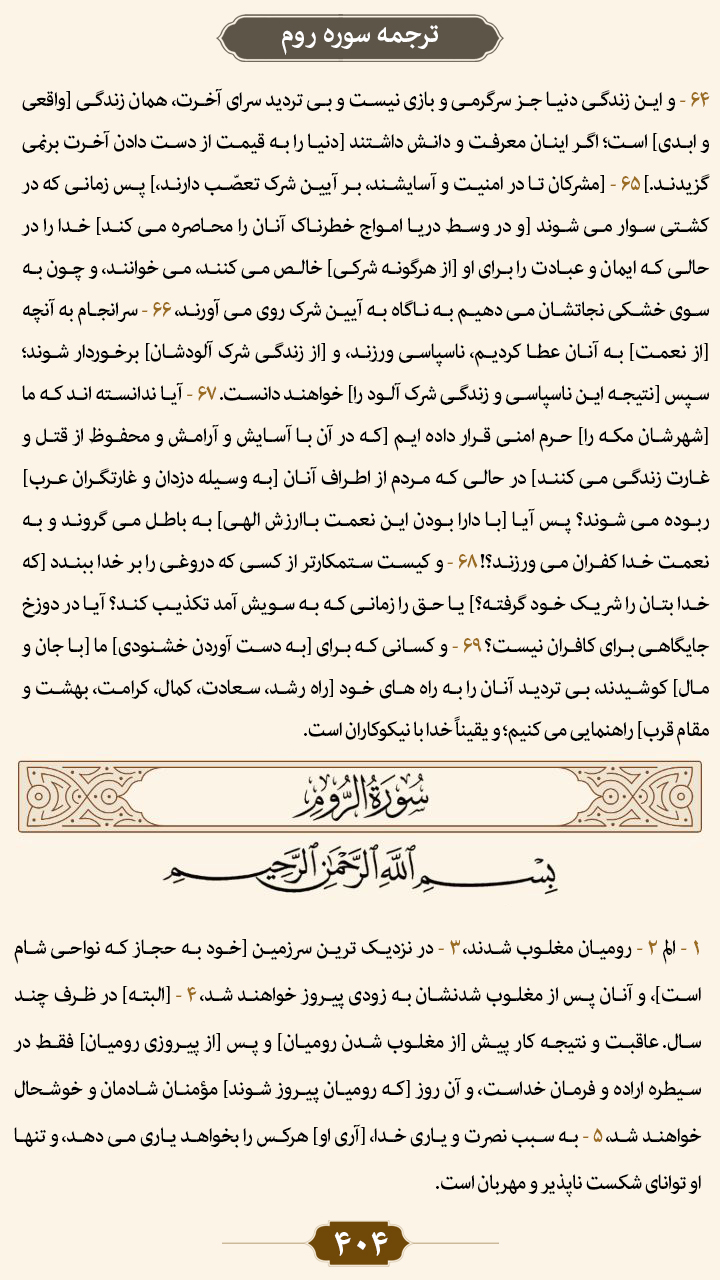 ترجمه سوره روم
۶۴ - و این زندگی دنیا جز سرگرمی و بازی نیست و بی تردید سرای آخرت، همان زندگی [واقعی
و ابدی] است؛ اگر اینان معرفت و دانش داشتند [دنیا را به قیمت از دست دادن آخرت برنمی
گزیدند.] ۶۵ - [مشرکان تا در امنیت و آسایشند، بر آیین شرک تعصّب دارند،] پس زمانی که در
کشتی سوار می شوند [و در وسط دریا امواج خطرناک آنان را محاصره می کند] خدا را در
حالی که ایمان و عبادت را برای او [از هرگونه شرکی] خالص می کنند، می خوانند، و چون به
سوی خشکی نجاتشان می دهیم به ناگاه به آیین شرک روی می آورند، ۶۶ - سرانجام به آنچه
[از نعمت] به آنان عطا کردیم، ناسپاسی ورزند، و [از زندگی شرک آلودشان] برخوردار شوند؛
سپس [نتیجه این ناسپاسی و زندگی شرک آلود را] خواهند دانست. ۶۷ - آیا ندانسته اند که ما
[شهرشان مکه را] حرم امنی قرار داده ایم [که در آن با آسایش و آرامش و محفوظ از قتل و
غارت زندگی می کنند] در حالی که مردم از اطراف آنان [به وسیله دزدان و غارتگران عرب]
ربوده می شوند؟ پس آیا [با دارا بودن این نعمت باارزش الهی] به باطل می گروند و به
نعمت خدا کفران می ورزند؟! ۶۸ - و کیست ستمکارتر از کسی که دروغی را بر خدا ببندد [که
خدا بتان را شریک خود گرفته؟] یا حق را زمانی که به سویش آمد تکذیب کند؟ آیا در دوزخ
جایگاهی برای کافران نیست؟ ۶۹ - و کسانی که برای [به دست آوردن خشنودی] ما [با جان و
مال] کوشیدند، بی تردید آنان را به راه های خود [راه رشد، سعادت، کمال، کرامت، بهشت و
مقام قرب] راهنمایی می کنیم؛ و یقیناً خدا با نیکوکاران است.
سُورَةُ الرُّومِ
بِسْمِ اللَّهِ الرَّحْمَٰنِ الرَّحِيمِ
۱ - الم ۲ - رومیان مغلوب شدند، ۳ - در نزدیک ترین سرزمین [خود به حجاز که نواحی شام
است]، و آنان پس از مغلوب شدنشان به زودی پیروز خواهند شد، ۴ - [البته] در ظرف چند
سال. عاقبت و نتیجه کار پیش [از مغلوب شدن رومیان] و پس [از پیروزی رومیان] فقط در
سیطره اراده و فرمان خداست، و آن روز [که رومیان پیروز شوند] مؤمنان شادمان و خوشحال
خواهند شد، ۵ - به سبب نصرت و یاری خدا، [آری او] هرکس را بخواهد یاری می دهد، و تنها
او توانای شکست ناپذیر و مهربان است.
۴۰۴